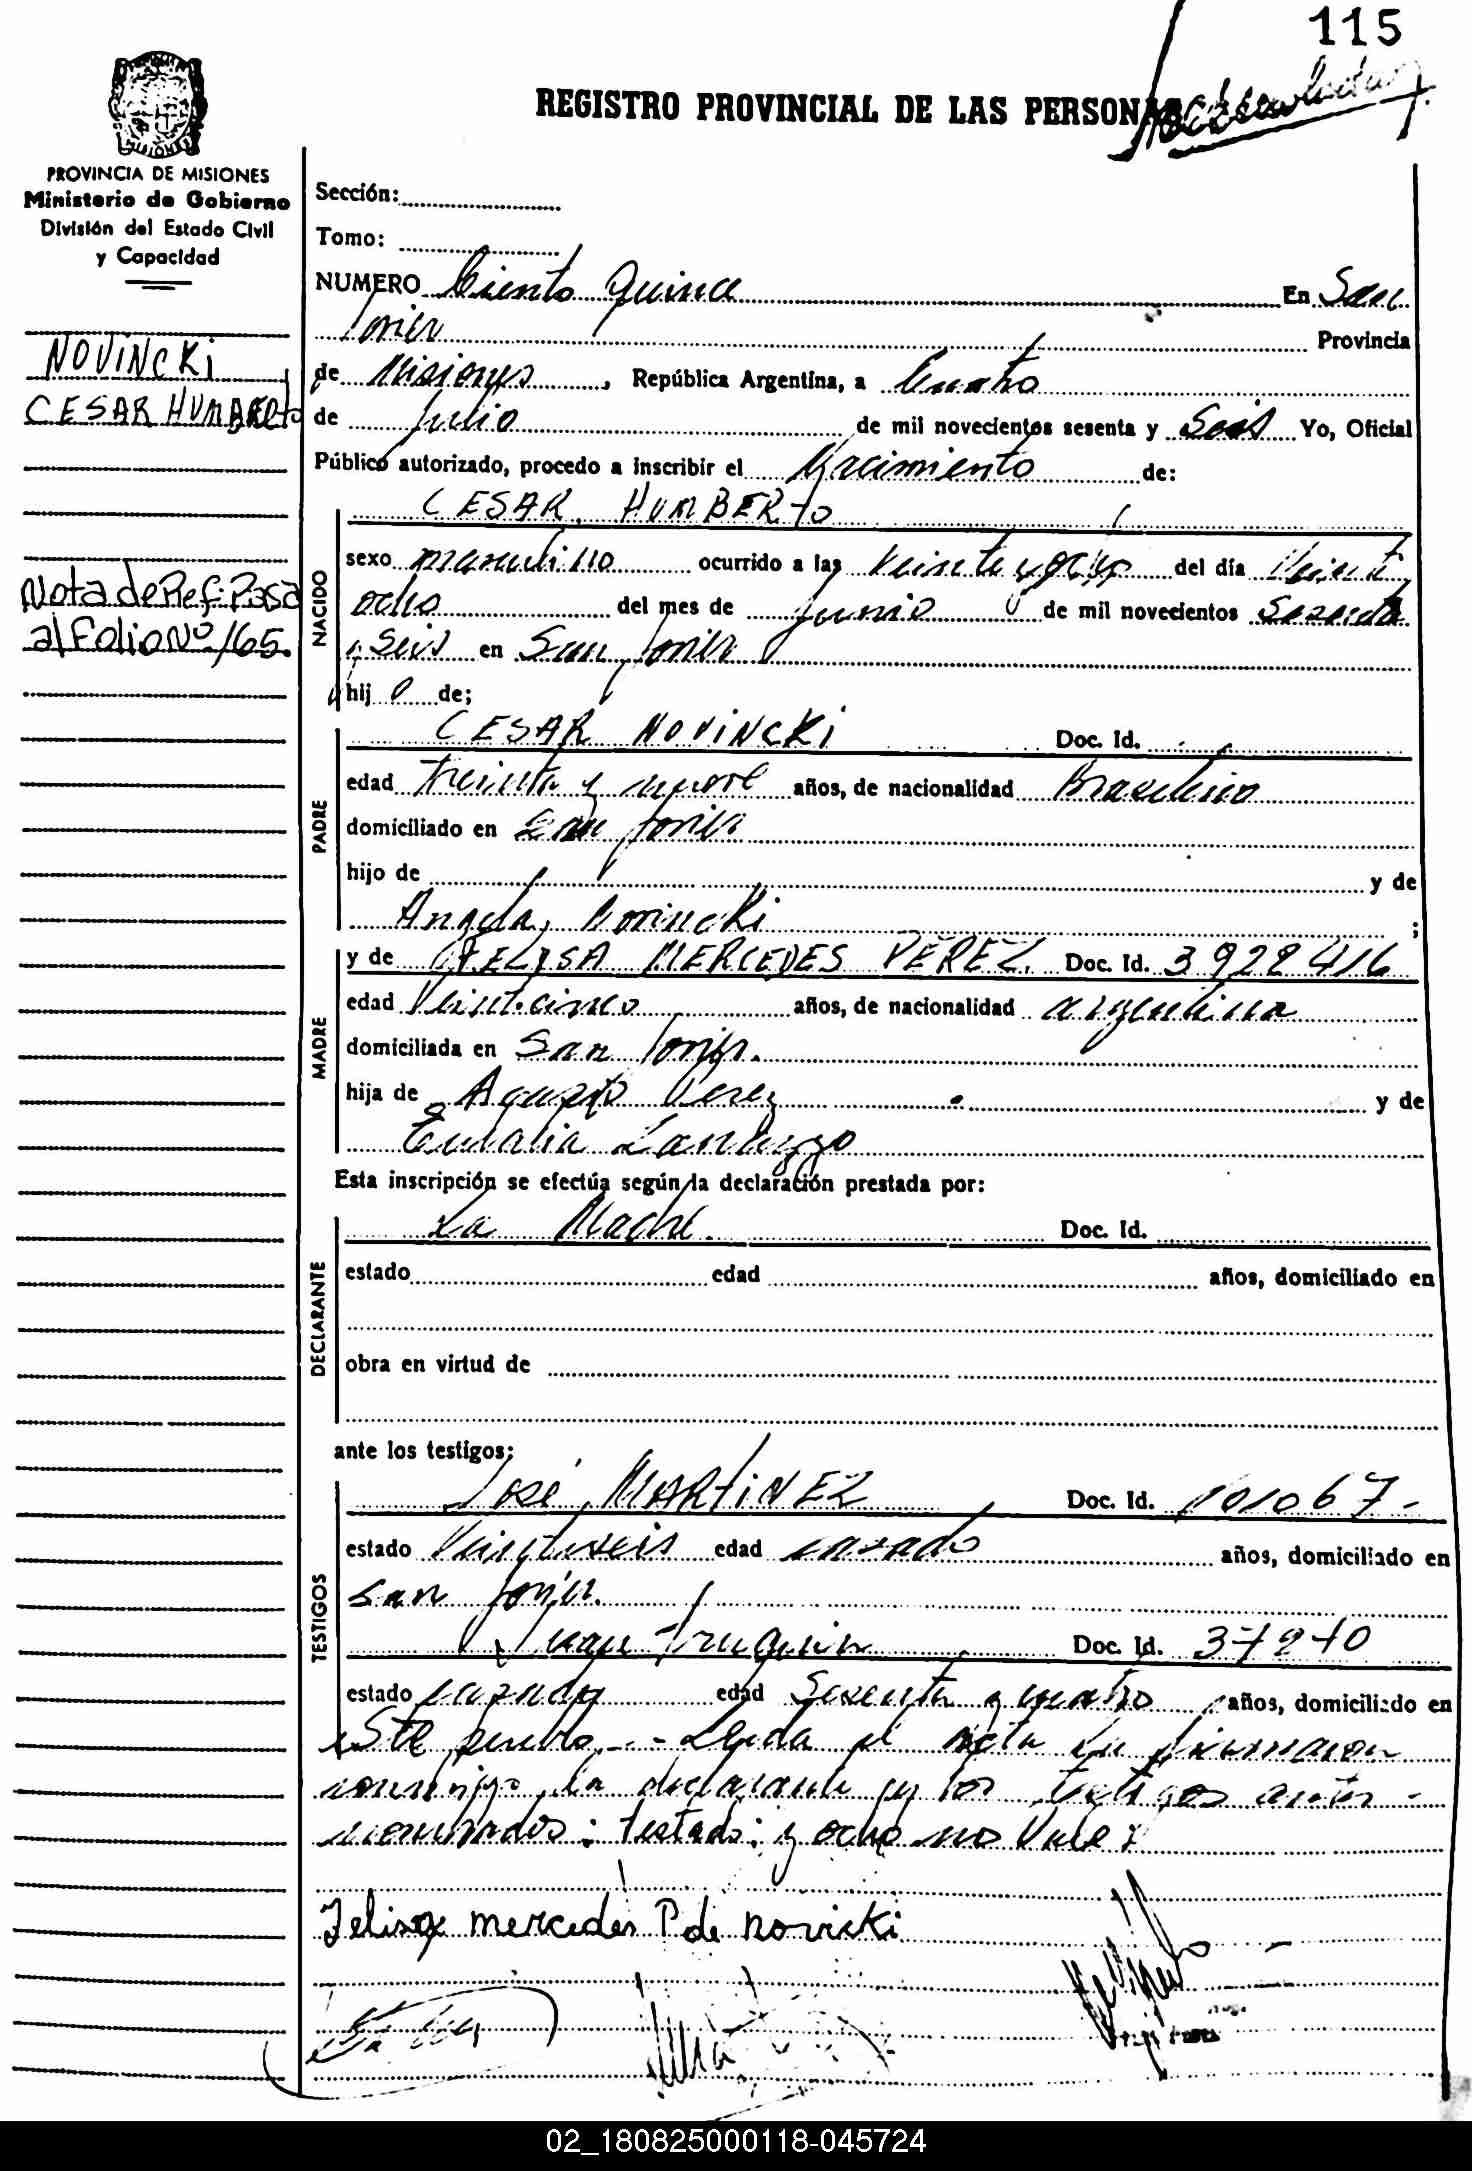 115
REGISTRO PROVINCIAL DE LAS PERSONAS
PROVINCIA DE MISIONES
Ministerio de Gobierno
División del Estado Civil
y Capacidad
NOVINCKI
CESAR HUMBERTO
Nota de Ref: Pasa
al Folio Nº 165.
Sección:
Tomo:
NUMERO Ciento Quince En San
Javier Provincia
de Misiones, República Argentina, a Cuatro
de Julio de mil novecientos sesenta y Seis Yo, Oficial
Público autorizado, procedo a inscribir el Nacimiento de:
NACIDO
CESAR HUMBERTO
sexo masculino ocurrido a las veinte y ocho del día Veinti
ocho del mes de Junio de mil novecientos Sesenta
y Seis en San Javier
hijo de;
PADRE
CESAR NOVINCKI Doc. Id.
edad treinta y nueve años, de nacionalidad Brasileño
domiciliado en San Javier
hijo de y de
Angela Novincki ;
MADRE
y de FELISA MERCEDES PEREZ Doc. Id. 3922416
edad Veinticinco años, de nacionalidad argentina
domiciliada en San Javier.
hija de Agusto Perez y de
Eulalia
Esta inscripción se efectúa según la declaración prestada por:
DECLARANTE
La Madre. Doc. Id.
estado edad años, domiciliado en
obra en virtud de
ante los testigos;
TESTIGOS
José MARTINEZ Doc. Id. 101067-
estado Veintiseis edad casado años, domiciliado en
San Javier.
Juan Doc. Id. 37270
estado casado edad Sesenta y cuatro años, domiciliado en
este pueblo.- Leida el acta la firmaron
conmigo la declarante y los testigos antes-
nombrados: testado: y ocho no Vale
Felisa mercedes P de novicki
02_180825000118-045724